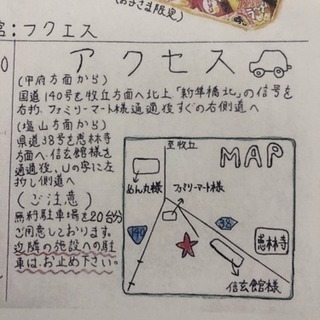 (お子さま限定)
宮:フクエス
アクセス
(甲府方面から)
国道140号を牧丘方面へ北上「新隼橋北」の信号を
右折、ファミリーマート様通過後すぐの右側道へ
(塩山方面から)
県道38号を恵林寺
方面へ、信玄館様を
通過後、Uの字に左
折し側道へ
(ご注意)
無料駐車場を20台分
ご用意しております。
近隣の施設への駐
車はお止め下さい。
至牧丘
MAP
めん丸様
ファミリーマート様
140
38
恵林寺
信玄館様